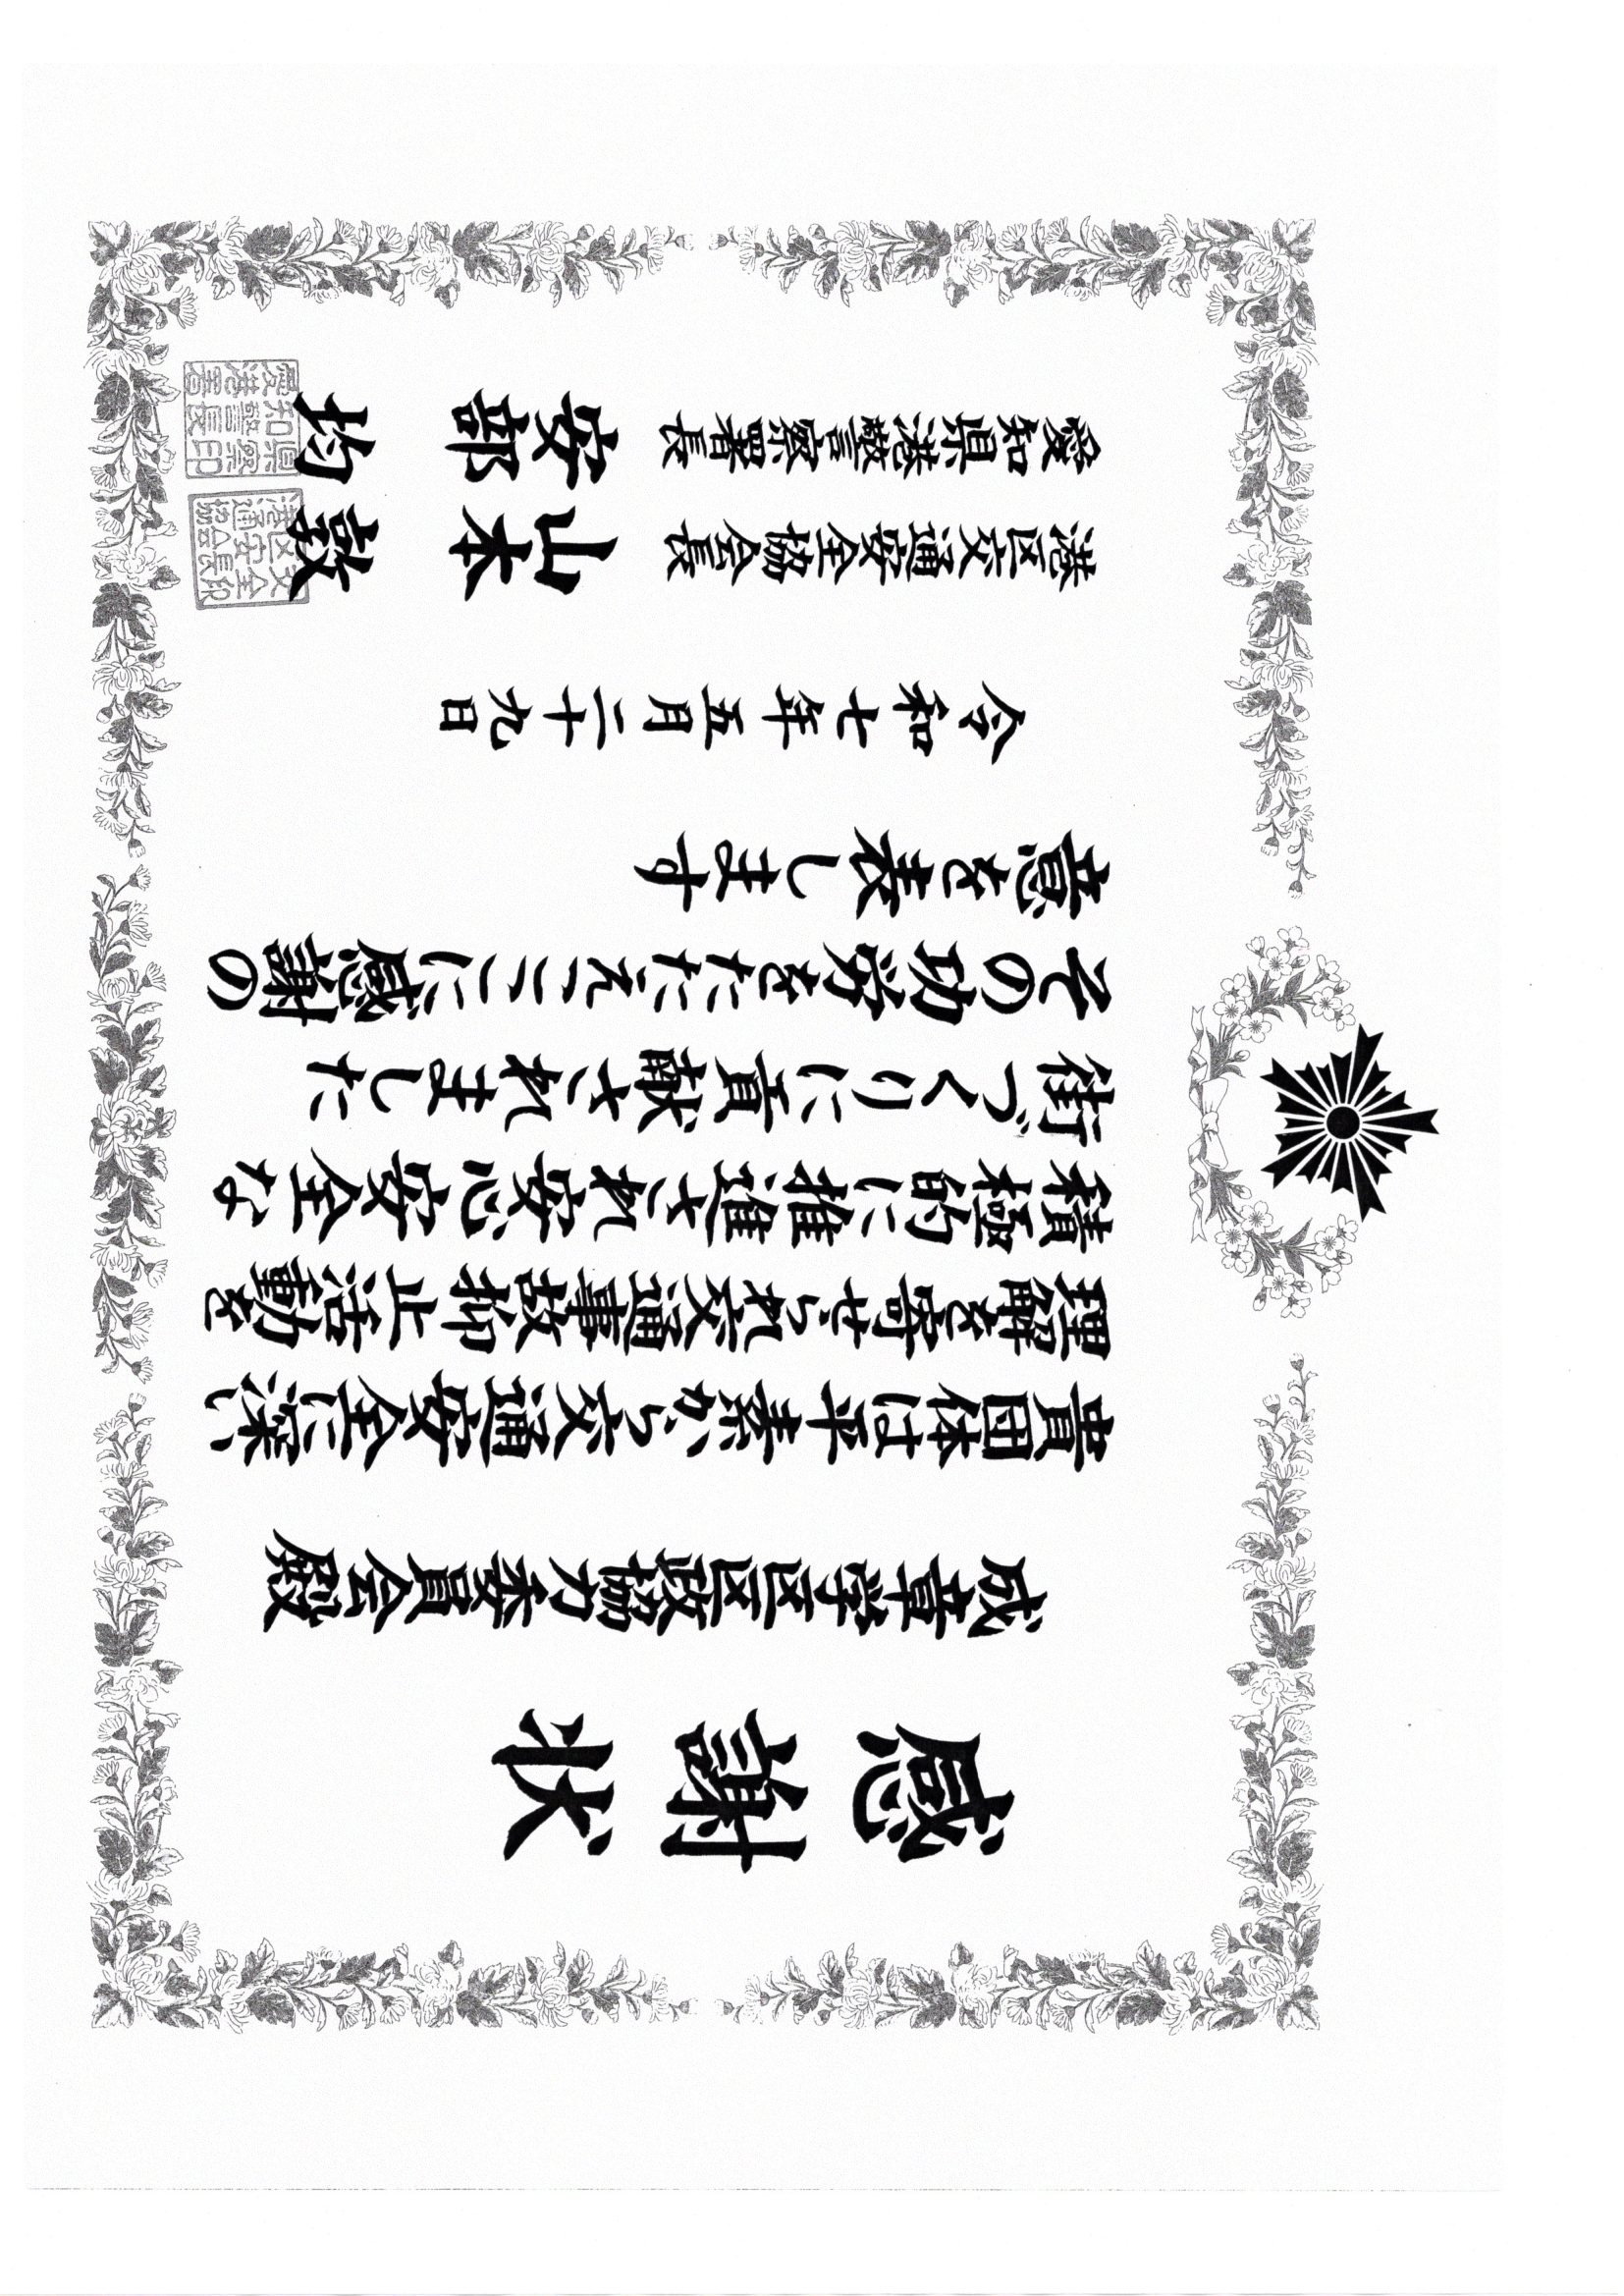 感謝状
成章学区区政協力委員会殿
貴団体は平素から交通安全に深い
理解を寄せられ交通事故抑止活動を
積極的に推進され安心安全な
街づくりに貢献されました
その功労をたたえここに感謝の
意を表します
令和七年五月二十九日
港区交通安全協会長 山本 敦
愛知県港警察署長 安部 均
港区交通安全協会長印
愛知県港警察署長印